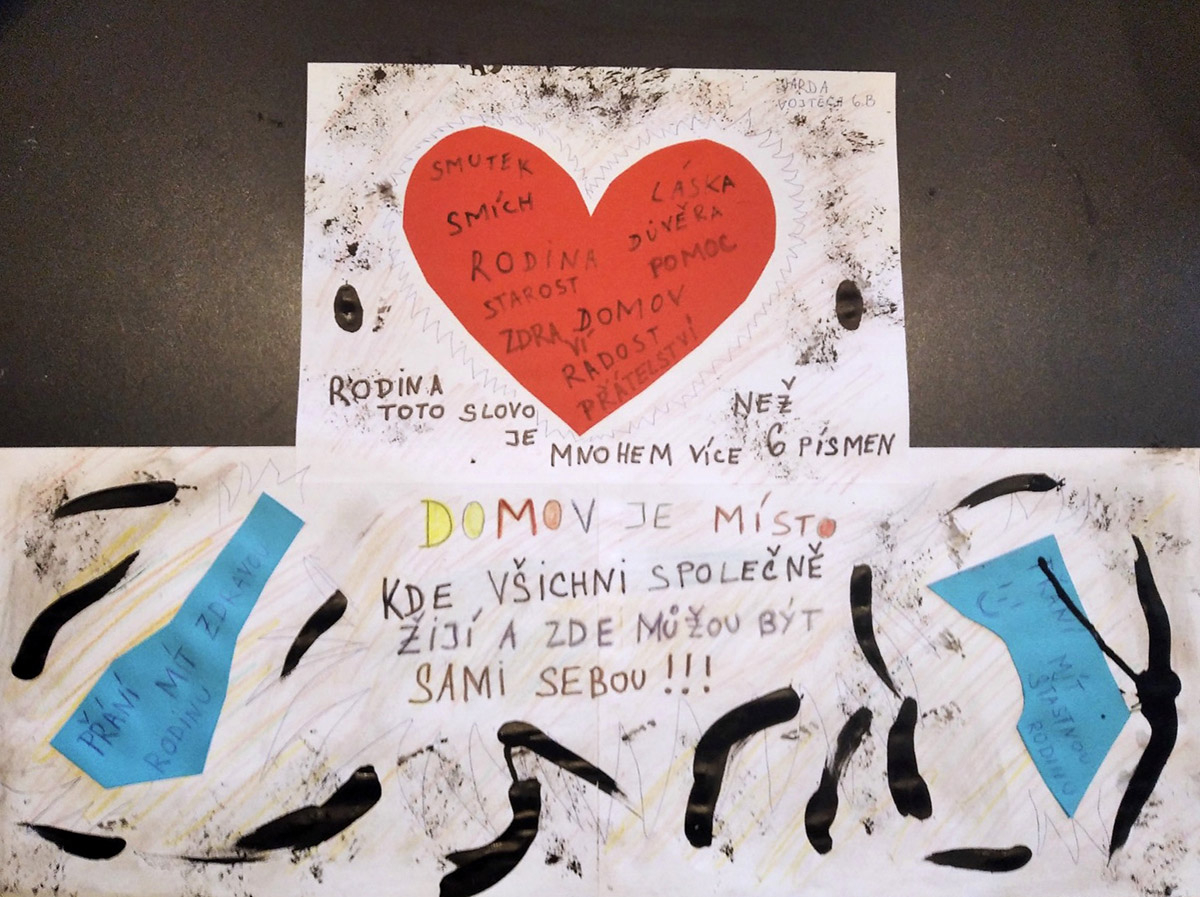 VOJTĚCH 6.B
SMUTEK
SMÍCH
RODINA
STAROST
ZDRA
VÍ
LÁSKA
DŮVĚRA
POMOC
DOMOV
RADOST
PŘÁTELSTVÍ
RODINA
TOTO SLOVO
JE
MNOHEM VÍCE
NEŽ
6 PÍSMEN
DOMOV JE MÍSTO
KDE VŠICHNI SPOLEČNĚ
ŽIJÍ A ZDE MŮŽOU BÝT
SAMI SEBOU!!!
PŘÁNÍ MÍT ZDRAVOU
RODINU
PŘÁNÍ MÍT
ŠŤASTNOU
RODINU